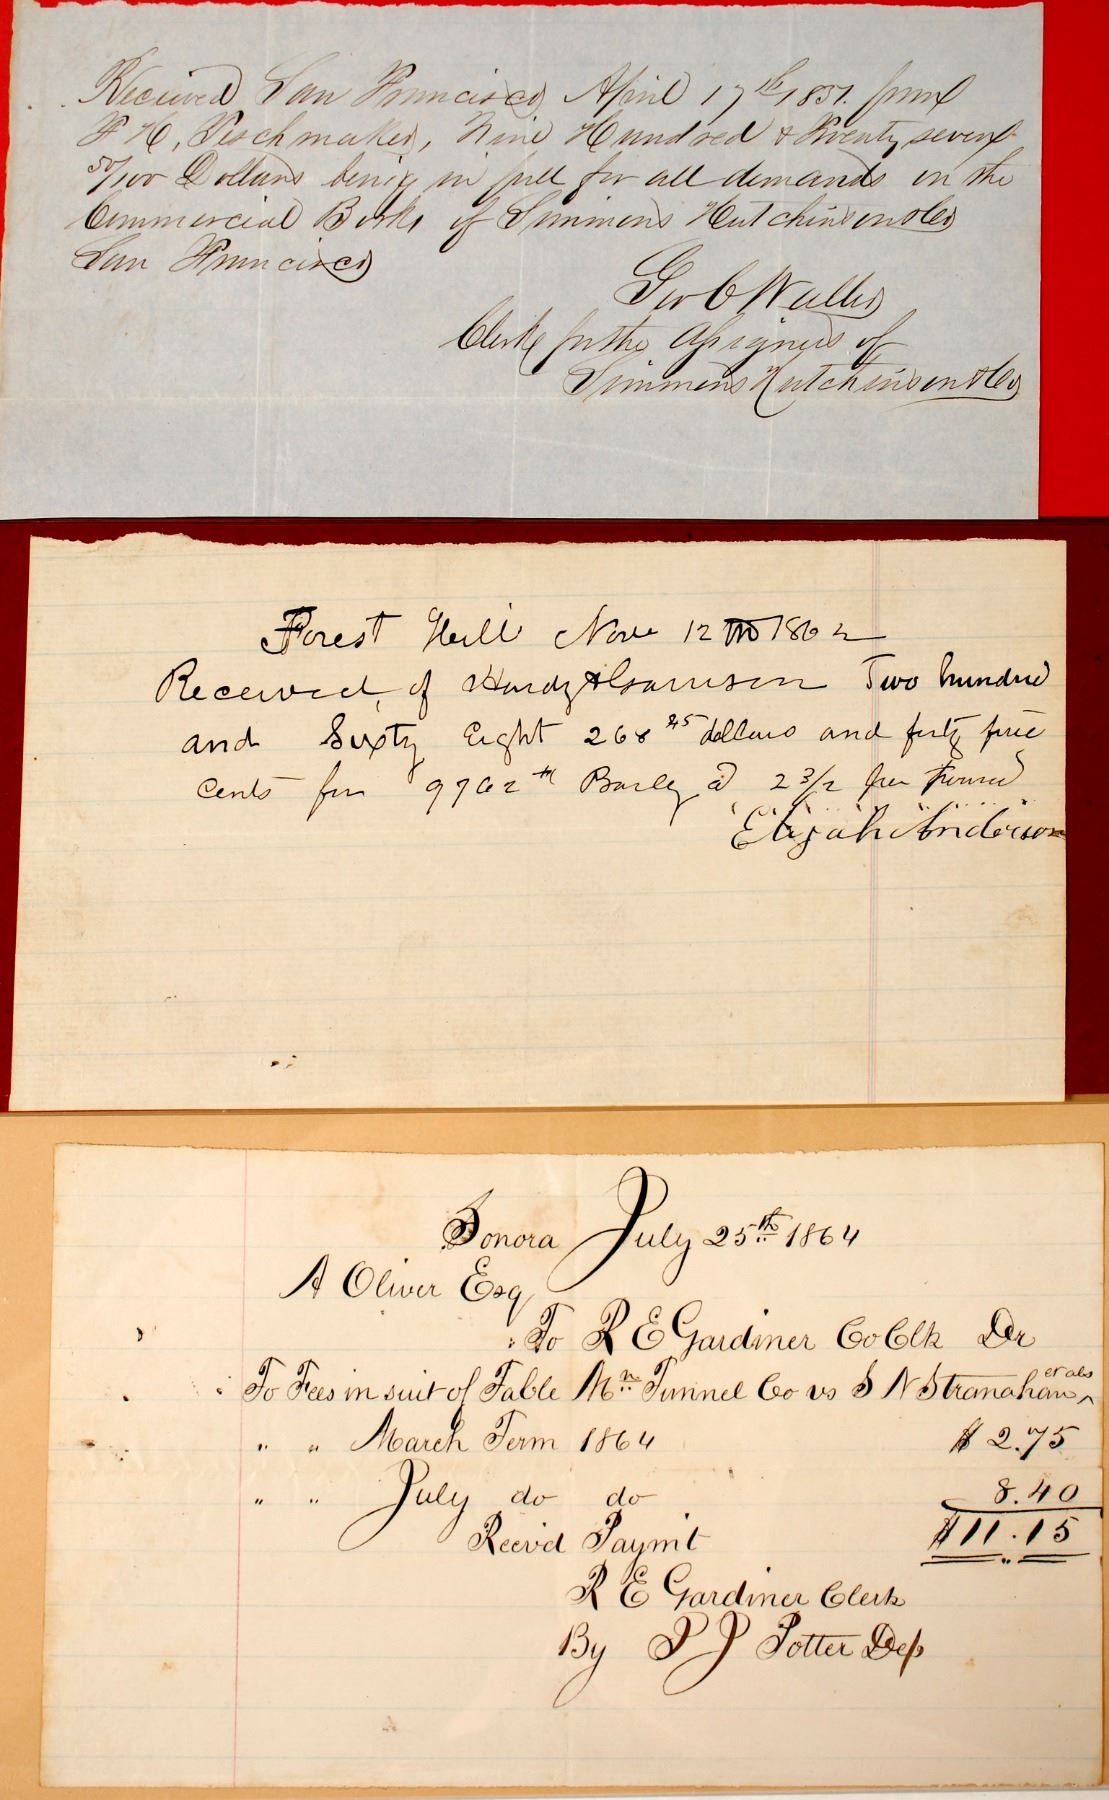 Received San Francisco April 17th 1851. from
F H, Teschmaker, Nine Hundred & Twenty seven
50/100 Dollars being in full for all demands on the
Commercial Books of Simmons Hutchinson & Co
San Francisco
Geo C Waller
Clerk for the Assignees of
Simmons Hutchinson & Co
Forest Hill Nov 12th 1862
Received of Hardy & Garrison Two hundred
and Sixty Eight 268 45 dollars and forty five
cents for 9762 Barley @ 2 3/2 per Pound
Elijah Anderson
Sonora July 25th 1864
A Oliver Esq
To R E Gardiner Co Clk Dr
To Fees in suit of Table Mn Tunnel Co vs S N Stranahan et als
" " March Term 1864 $2.75
" " July do do 8.40
Reev'd Paymt $11.15
R E Gardiner Clerk
By P J Potter Dep